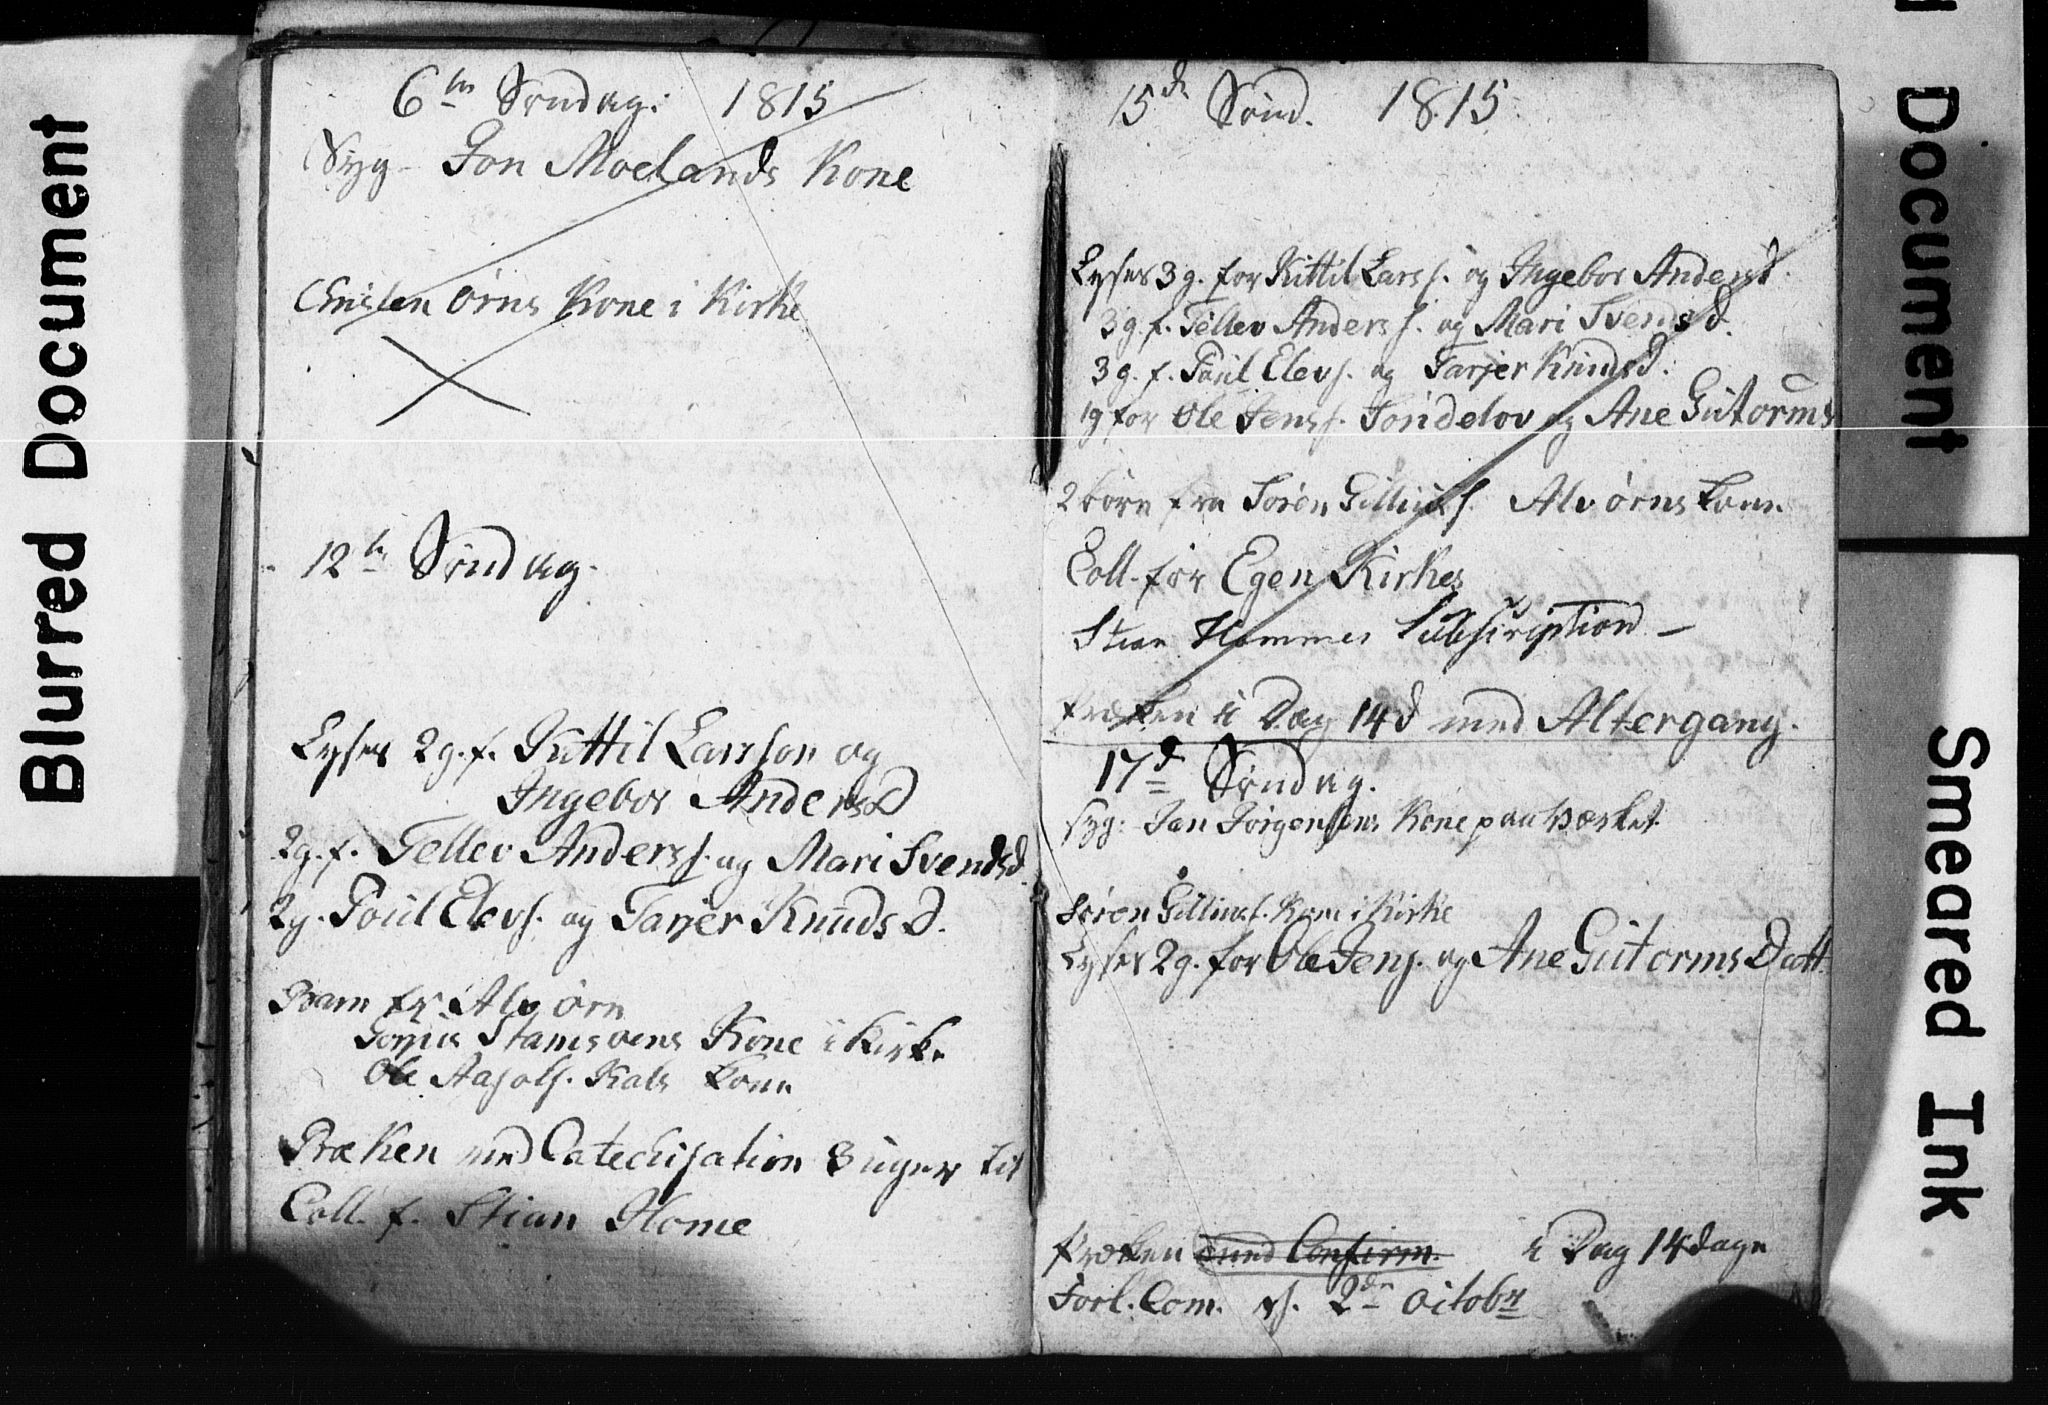 6te Søndag. 1815
Syg - Jon Moelands Kone
Christen Ørns Kone i Kirke
12te Søndag.
Lyses 2 g. f. Kittil Larsson og
Ingebor AndersD
2 g. f. Tellev Anderss. og Mari Svendsd.
2 g. Poul Elevs. og Tarjer Knuds D.
Barn fr. Alv Ørn
Stamsoens Kone i Kirke
Ole Aasols. Kals Kone
Præken med Catechisation 3 uger til
Coll. f. Stian Home
15de Sønd. 1815
Lyses 3 g. for Kittil Larss. og Ingebor Andersd.
3 g. f. Tellev Anderss. og Mari Svendsd.
3 g. f. Poul Elevs. og Tarjer Knudsd.
1 g for Ole Jenss. Tondelov og Ane Gutorms
2 børn fra Søren Gillius. Alv Ørns Kone
Coll. for Egen Kirke
Stian Hommes Subscription -
Præken i Dag 14 d med Altergang.
17de Søndag.
Syg: Jan Jørgensens Kone paa Værket
Søren Gillius. Kone i Kirke
Lyses 2 g. for Ole Jens. og Ane Gutorms Datt.
Præken med Confirm. i Dag 14 dage
Forl. Com. 2de Octobr
Blurred Document
Document
Smeared Ink